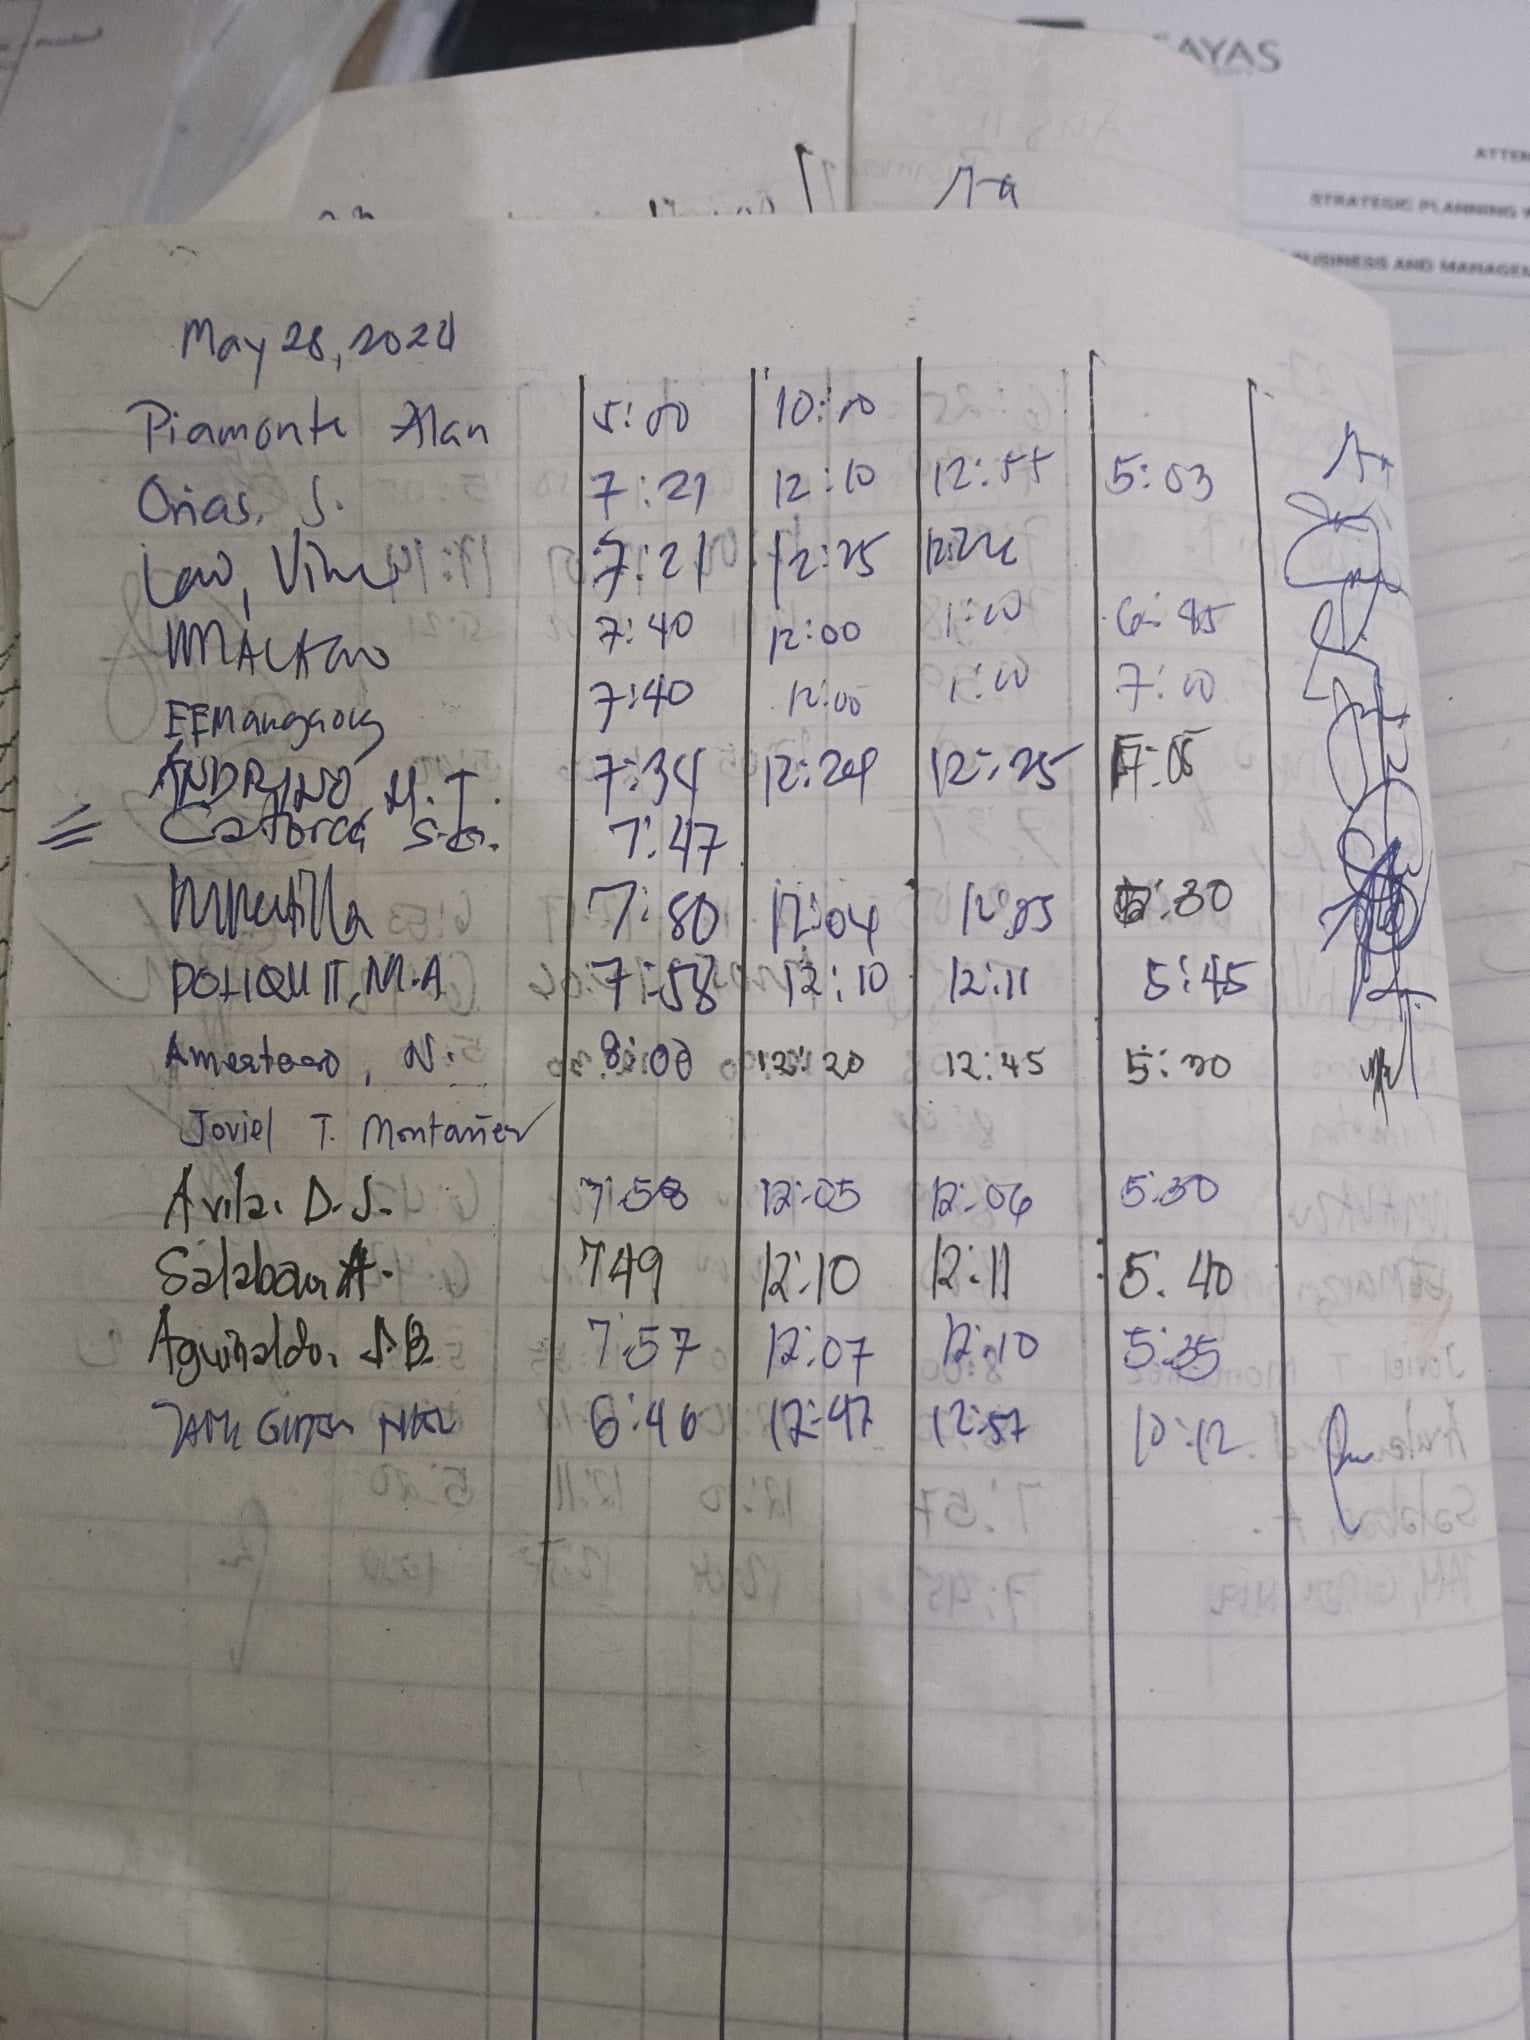 AYAS
ATTEN
STRATEGIC PLANNING
BUSINESS AND MANAGEM
May 28, 2024
Piamonte Alan 5:00 10:00
Orias, S. 7:21 12:10 12:55 5:03
Law, 7:21 12:25
7:40 12:00 1:00 6:45
EEMangaong 7:40 12:00 1:00 7:00
ANDRINO, M.T. 7:34 12:24 12:25 7:05
Catorce S.G. 7:47
12:04 12:05 30
POLIQUIT, M.A 7:58 12:10 12:11 5:45
N. 8:00 12:20 12:45 5:30
Joviel T. Montañer
Avila, D.J. 7:58 12:05 12:06 5:30
Salabao, A. 749 12:10 12:11 5:40
Aguinaldo, J.B. 7:57 12:07 12:10 5:35
6:46 12:47 12:57 10:12